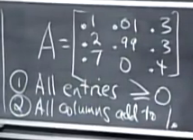 A = [ .1 .01 .3
.2 .99 .3
.7 0 .4 ]
① All entries ≥ 0
② All columns add to 1.